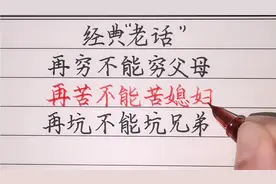 经典“老话”
再穷不能穷父母
再苦不能苦媳妇
再坑不能坑兄弟